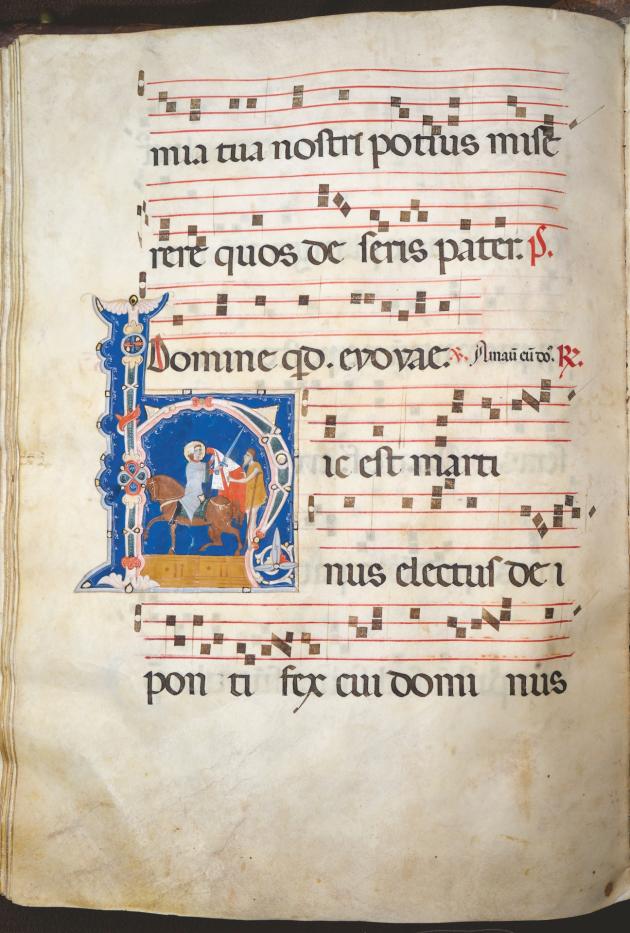 mia tua nostri potius mise
rere quos de seris pater. P.
Domine qd. evovae. V. Amaū cū do. R.
Hic est marti
nus electus de i
pon ti fex cui domi nus